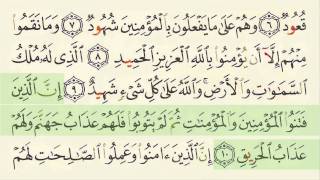 قُعُودٌ ۝٦ وَهُمْ عَلَىٰ مَا يَفْعَلُونَ بِٱلْمُؤْمِنِينَ شُهُودٌ ۝٧ وَمَا نَقَمُوا۟
مِنْهُمْ إِلَّآ أَن يُؤْمِنُوا۟ بِٱللَّهِ ٱلْعَزِيزِ ٱلْحَمِيدِ ۝٨ ٱلَّذِى لَهُۥ مُلْكُ
ٱلسَّمَـٰوَٰتِ وَٱلْأَرْضِ ۚ وَٱللَّهُ عَلَىٰ كُلِّ شَىْءٍ شَهِيدٌ ۝٩ إِنَّ ٱلَّذِينَ
فَتَنُوا۟ ٱلْمُؤْمِنِينَ وَٱلْمُؤْمِنَـٰتِ ثُمَّ لَمْ يَتُوبُوا۟ فَلَهُمْ عَذَابُ جَهَنَّمَ وَلَهُمْ
عَذَابُ ٱلْحَرِيقِ ۝١٠ إِنَّ ٱلَّذِينَ ءَامَنُوا۟ وَعَمِلُوا۟ ٱلصَّـٰلِحَـٰتِ لَهُمْ